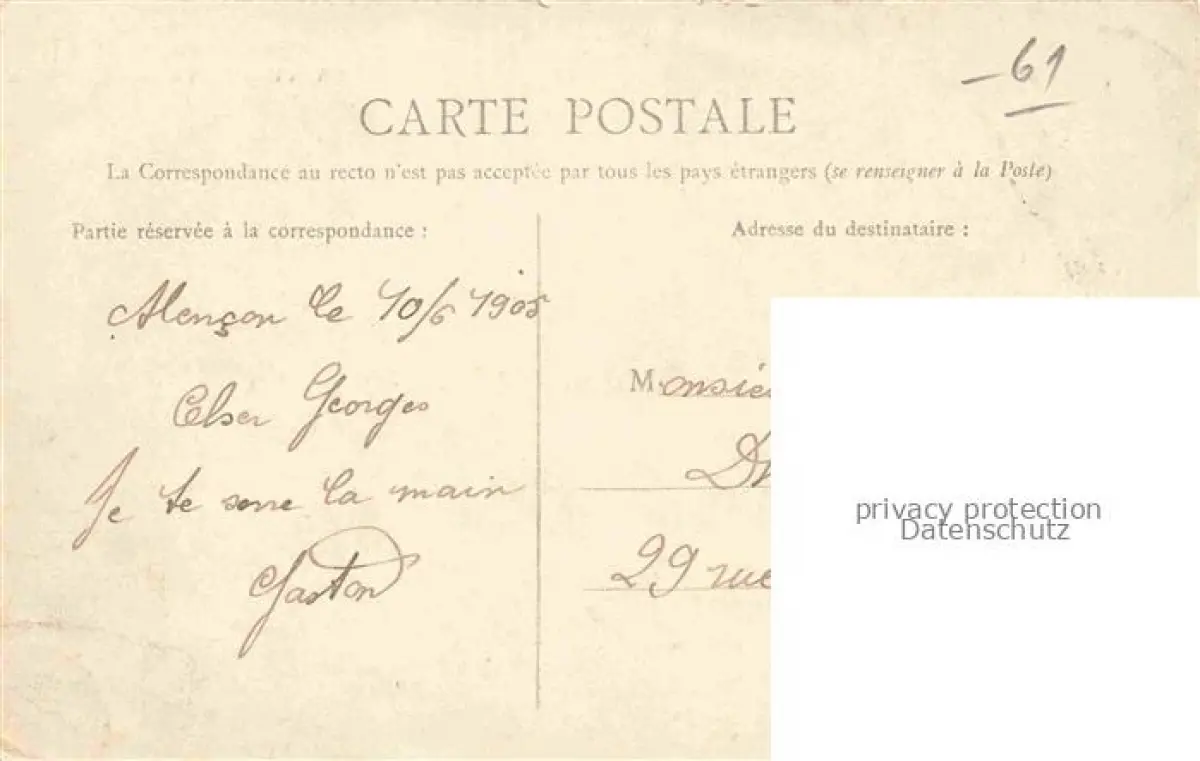 - 61
CARTE POSTALE
La Correspondance au recto n'est pas acceptée par tous les pays étrangers (se renseigner à la Poste)
Partie réservée à la correspondance :
Alençon le 10/6 1905
Cher Georges
Je te serre la main
Gaston
Adresse du destinataire :
Monsie
D
29 rue
privacy protection
Datenschutz